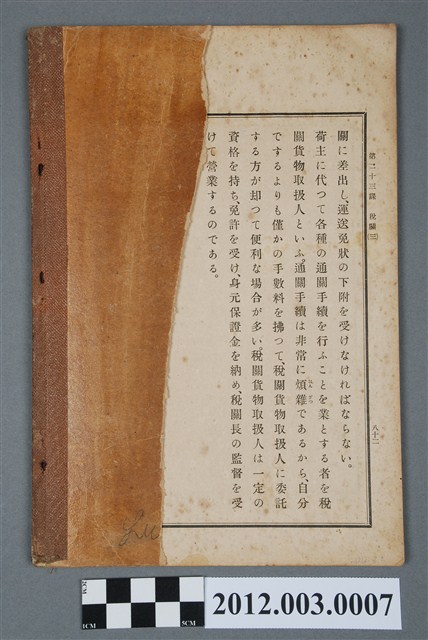 第二十三課 税關(三)
八十二
關に差出し、運送免狀の下附を受けなければならない。
荷主に代つて各種の通關手續を行ふことを業とする者を税
關貨物取扱人といふ。通關手續は非常に煩雜であるから、自分
でするよりも僅かの手數料を拂つて、税關貨物取扱人に委託
する方が却つて便利な場合が多い。税關貨物取扱人は一定の
資格を持ち、免許を受け、身元保證金を納め、税關長の監督を受
けて營業するのである。
2CM
1CM
5CM
2012.003.0007